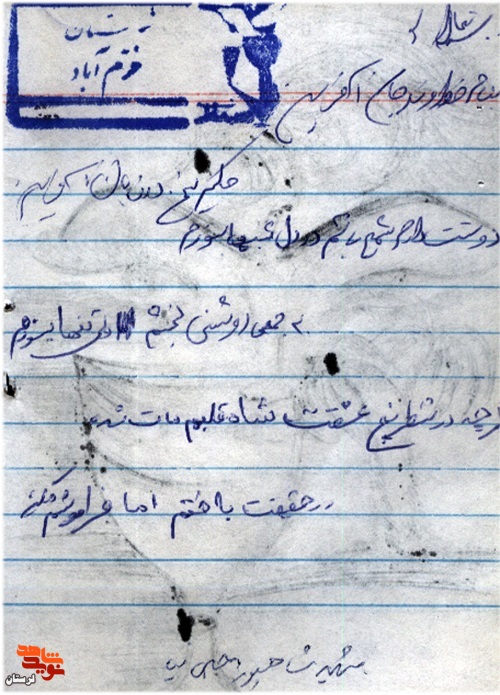 لرستان
خرم آباد
بنام خداوند جان آفرین
حکیم سخن در زبان آفرین
دوست دارم شمع باشم در دل شبها بسوزم
به جمعی روشنی بخشم ولی تنها بسوزم
هر چند در شطرنج عشقت شاه قلبم مات شد
در حقیقت باختم اما فراموشم مکن
شهید
نوید شاهد
لرستان